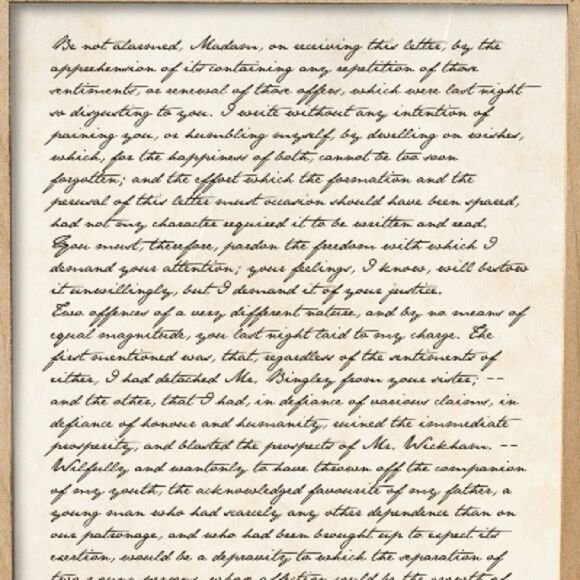 Be not alarmed, Madam, on receiving this letter, by the
apprehension of its containing any repetition of those
sentiments, or renewal of those offers, which were last night
so disgusting to you. I write without any intention of
paining you, or humbling myself, by dwelling on wishes,
which, for the happiness of both, cannot be too soon
forgotten; and the effort which the formation and the
perusal of this letter must occasion should have been spared,
had not my character required it to be written and read.
You must, therefore, pardon the freedom with which I
demand your attention; your feelings, I know, will bestow
it unwillingly, but I demand it of your justice.
Two offences of a very different nature, and by no means of
equal magnitude, you last night laid to my charge. The
first mentioned was, that, regardless of the sentiments of
either, I had detached Mr. Bingley from your sister; --
and the other, that I had, in defiance of various claims, in
defiance of honour and humanity, ruined the immediate
prosperity, and blasted the prospects of Mr. Wickham. --
Wilfully and wantonly to have thrown off the companion
of my youth, the acknowledged favourite of my father, a
young man who had scarcely any other dependence than on
our patronage, and who had been brought up to expect its
exertion, would be a depravity to which the separation of
two young persons, whose affection could be the growth of